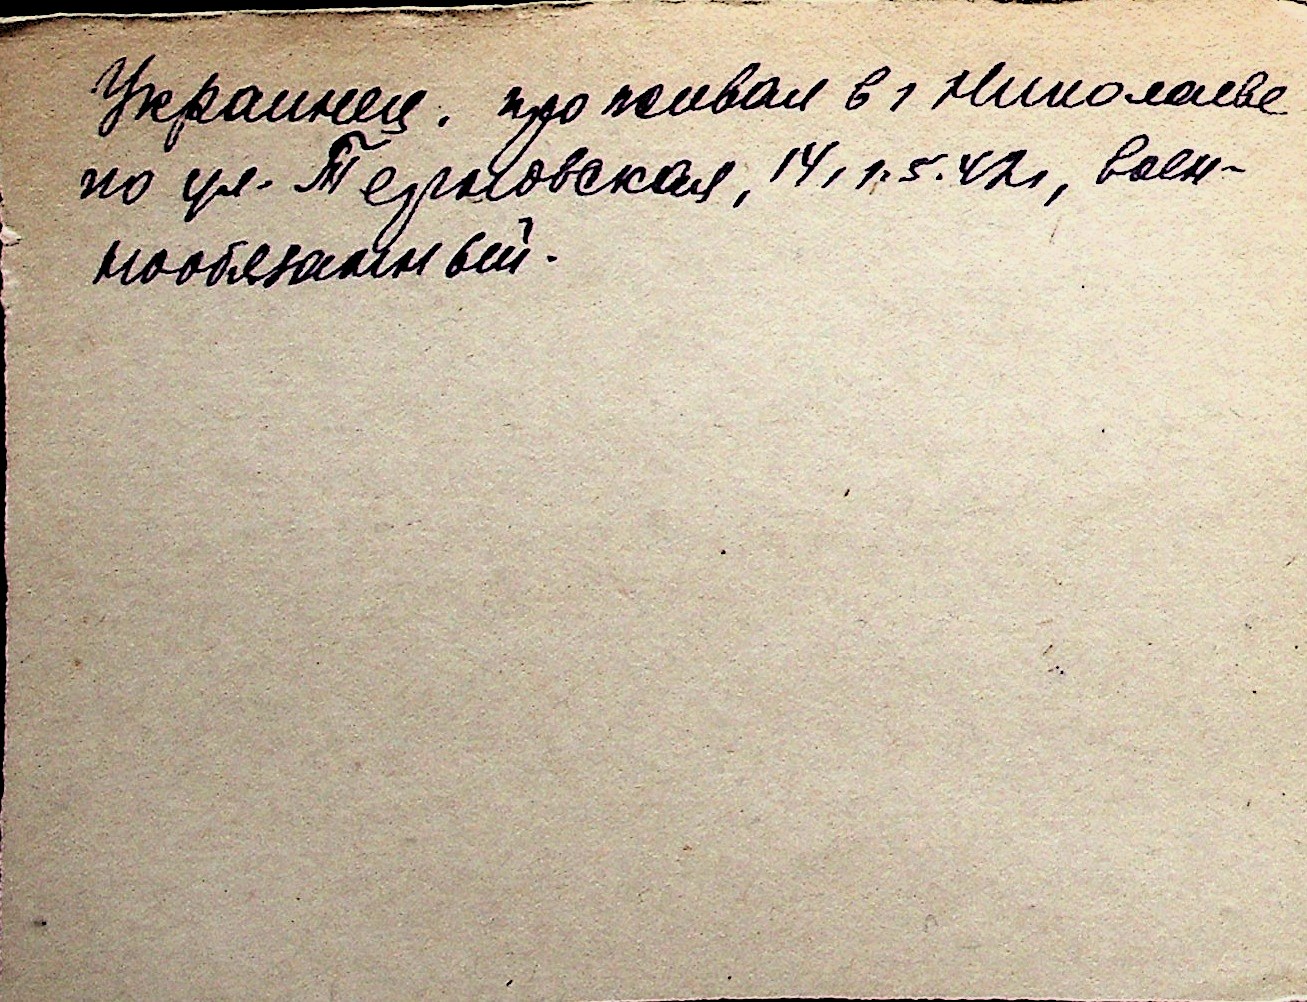 Украинец. проживал в г Николаеве
по ул. Терновская, 14, 1.5.42г, воен-
нообязанный.